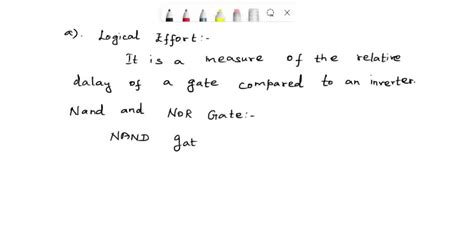 a). Logical Effort:-
It is a measure of the relative
dalay of a gate compared to an inverter.
Nand and NOR Gate:-
NAND gat